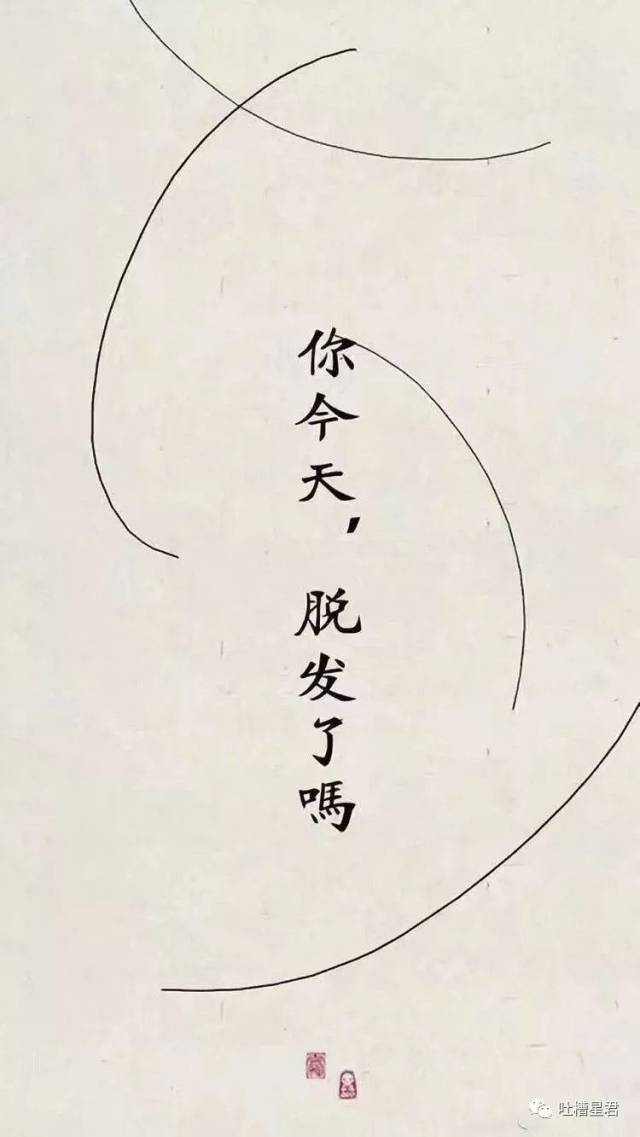 你今天，
脱发了嗎
吐槽星君